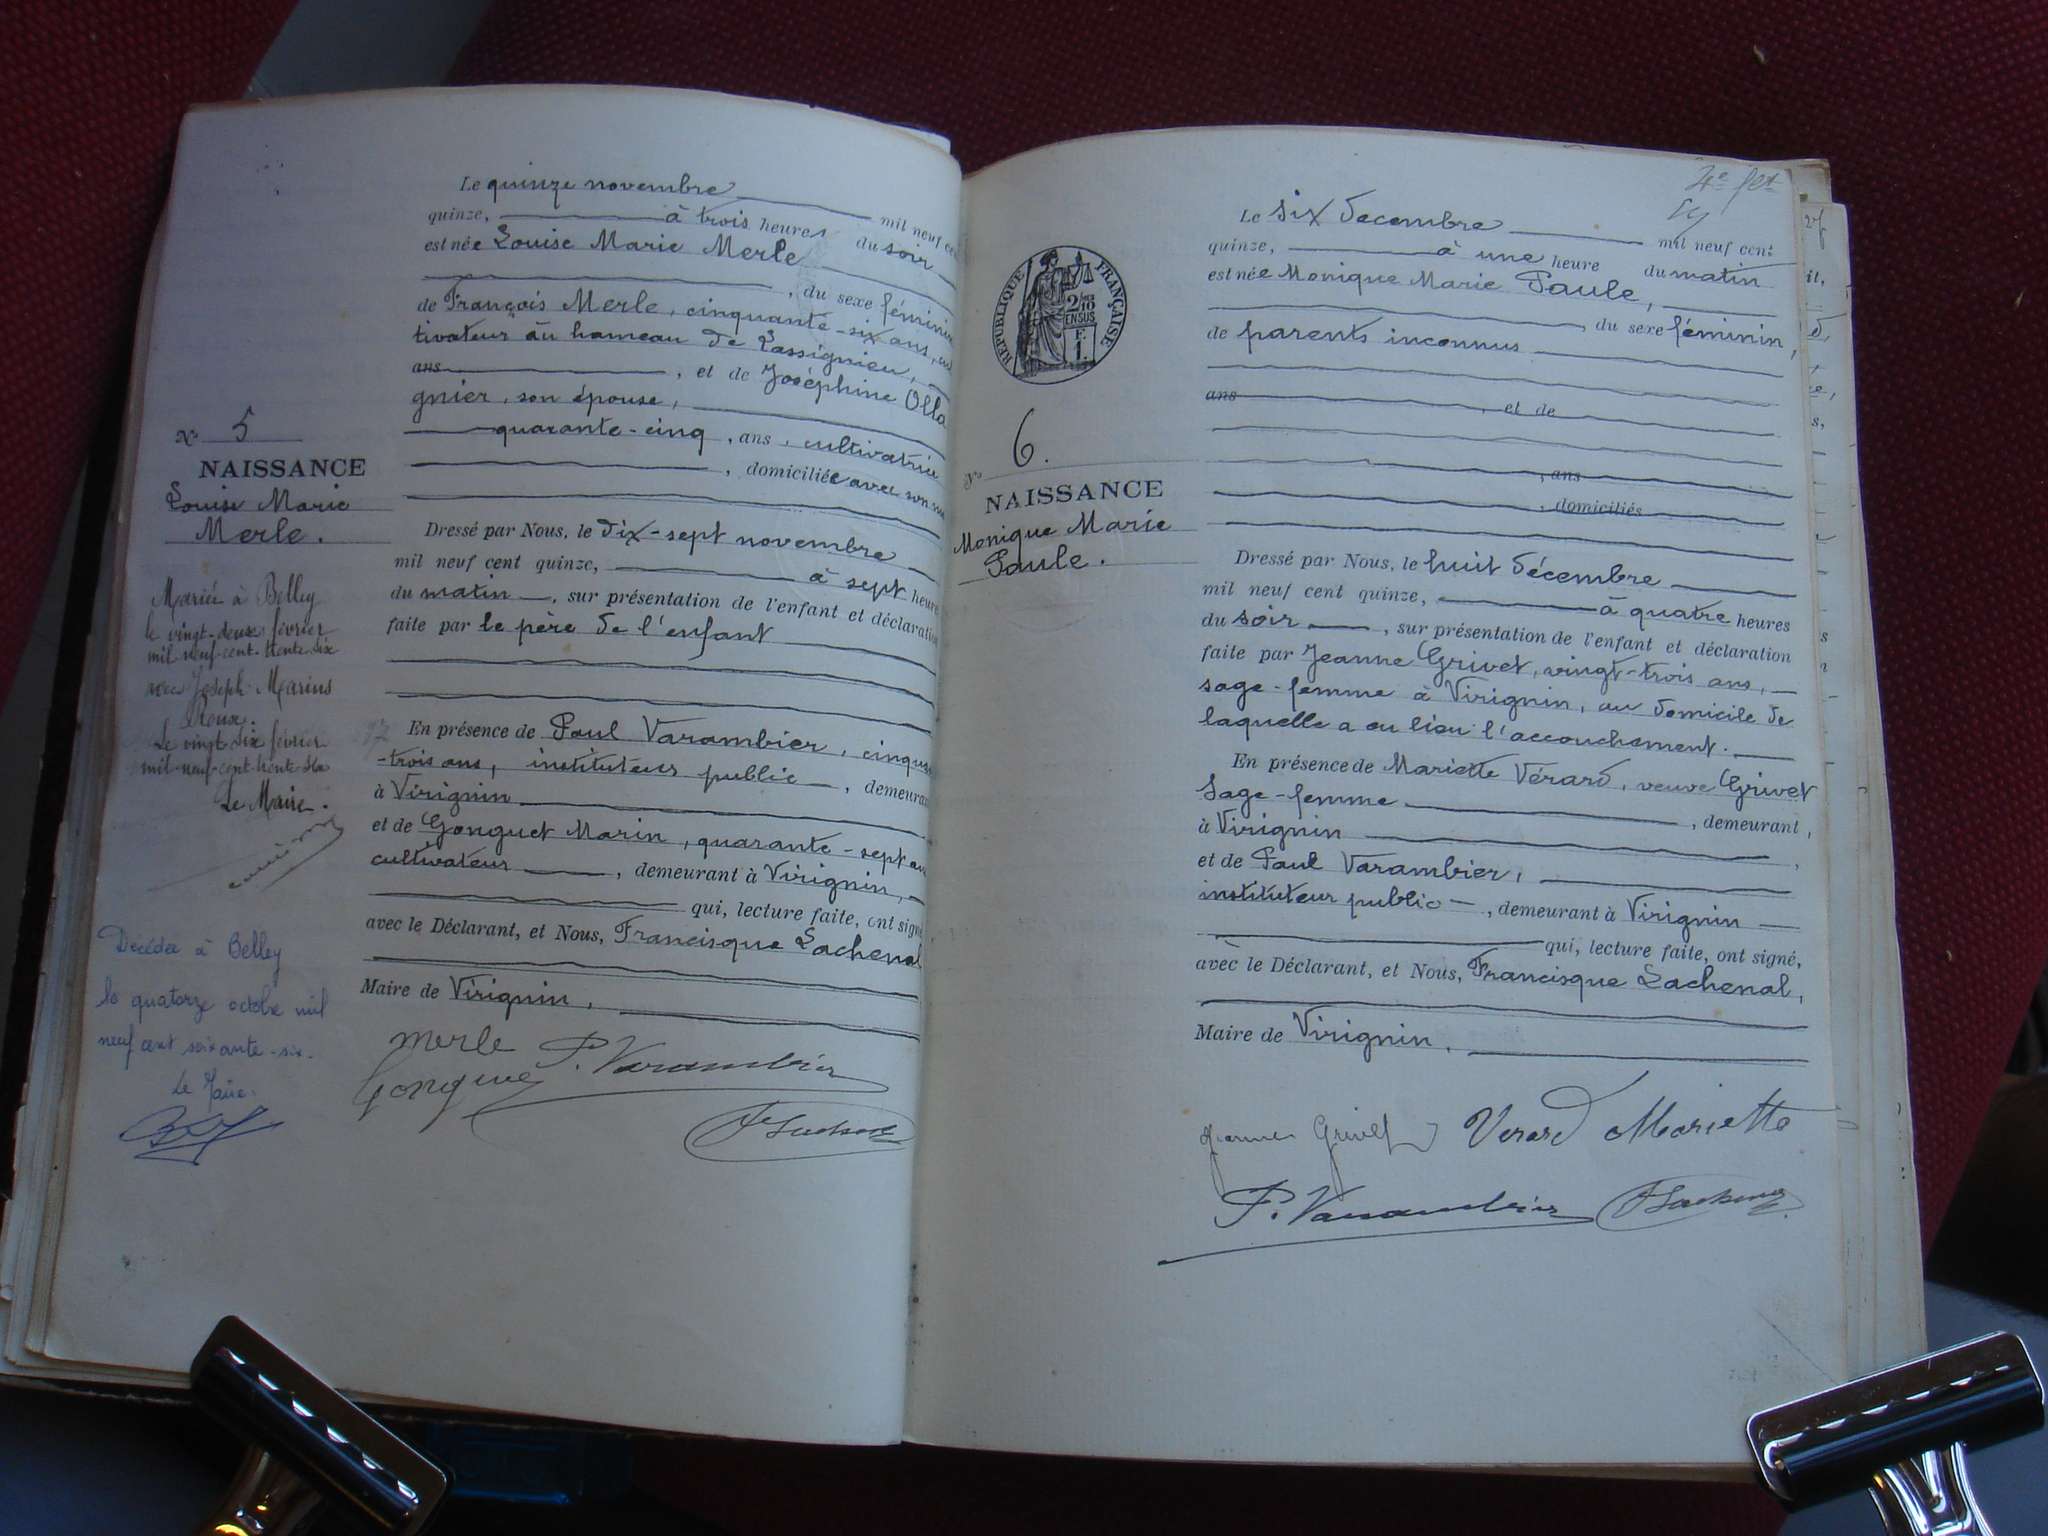 Nº 5
NAISSANCE
Louise Marie
Merle.
Mariée à Belley
le vingt-deux février
mil neuf cent trente six
avec Joseph Marius
Roux.
Le vingt six février
mil neuf cent trente six
Le Maire.
Décédée à Belley
le quatorze octobre mil
neuf cent soixante-six.
Le Maire.
Le quinze novembre mil neuf cen
quinze, à trois heures du soir
est née Louise Marie Merle
, du sexe féminin
de François Merle, cinquante-six ans, cul
tivateur au hameau de Lassignieu,
ans , et de Joséphine Olla
gnier, son épouse,
quarante-cinq, ans, cultivatrice
, domiciliée avec son
Dressé par Nous, le dix-sept novembre
mil neuf cent quinze, à sept heure
du matin , sur présentation de l'enfant et déclaration
faite par le père de l'enfant
En présence de Paul Varambier, cinquan
-trois ans, instituteur public , demeuran
à Virignin
et de Gonguet Marin, quarante-sept an
cultivateur , demeurant à Virignin,
qui, lecture faite, ont signé
avec le Déclarant, et Nous, Francisque Lachenal
Maire de Virignin,
Merle P. Varambier
Gonguet
F Lachenal
4e fet
RÉPUBLIQUE FRANÇAISE
2/10
EN SUS
F.
1.
Nº 6.
NAISSANCE
Monique Marie
Paule.
Le six decembre mil neuf cent
quinze, à une heure du matin
est née Monique Marie Paule,
, du sexe féminin,
de parents inconnus
ans , et de
, ans
, domiciliés
Dressé par Nous, le huit décembre
mil neuf cent quinze, à quatre heures
du soir , sur présentation de l'enfant et déclaration
faite par Jeanne Grivet, vingt-trois ans,
sage-femme à Virignin, au domicile de
laquelle a eu lieu l'accouchement.
En présence de Mariette Vérard, veuve Grivet
sage-femme , demeurant,
à Virignin ,
et de Paul Varambier,
instituteur public , demeurant à Virignin
qui, lecture faite, ont signé,
avec le Déclarant, et Nous, Francisque Lachenal,
Maire de Virignin,
Jeanne Grivet Verard Mariette
P. Varambier F Lachenal